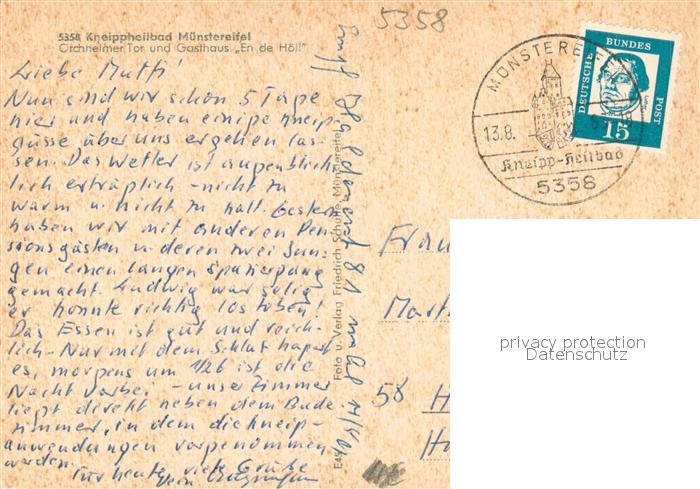 5358
5358 Kneippheilbad Münstereifel
Orchheimer Tor und Gasthaus „En de Höll"
Liebe Mutti!
Nun sind wir schon 5 Tage
hier und haben einige Kneip-
güsse über uns ergehen las-
sen. Das Wetter ist augenblick-
lich erträglich - nicht zu
warm u. nicht zu kalt. Gestern
haben wir mit anderen Pen
sionsgästen u. deren zwei Jun-
gen einen langen Spaziergang
gemacht. Ludwig war selig
er konnte richtig los toben!
Das Essen ist gut und reich-
lich - Nur mit dem Schlaf hapert
es, morgens um 1/2 6 ist die
Nacht vorbei - unser Zimmer
liegt direkt neben dem Bade
zimmer, in dem die Kneip-
anwendungen vorgenommen
werden.
Für heute viele Grüße
Foto u. Verlag Friedrich Schulte, Münstereifel
MÜNSTEREIFEL
13.8.
Kneipp-Heilbad
5358
DEUTSCHE BUNDESPOST
Luther
15
Frau
58
privacy protection
Datenschutz